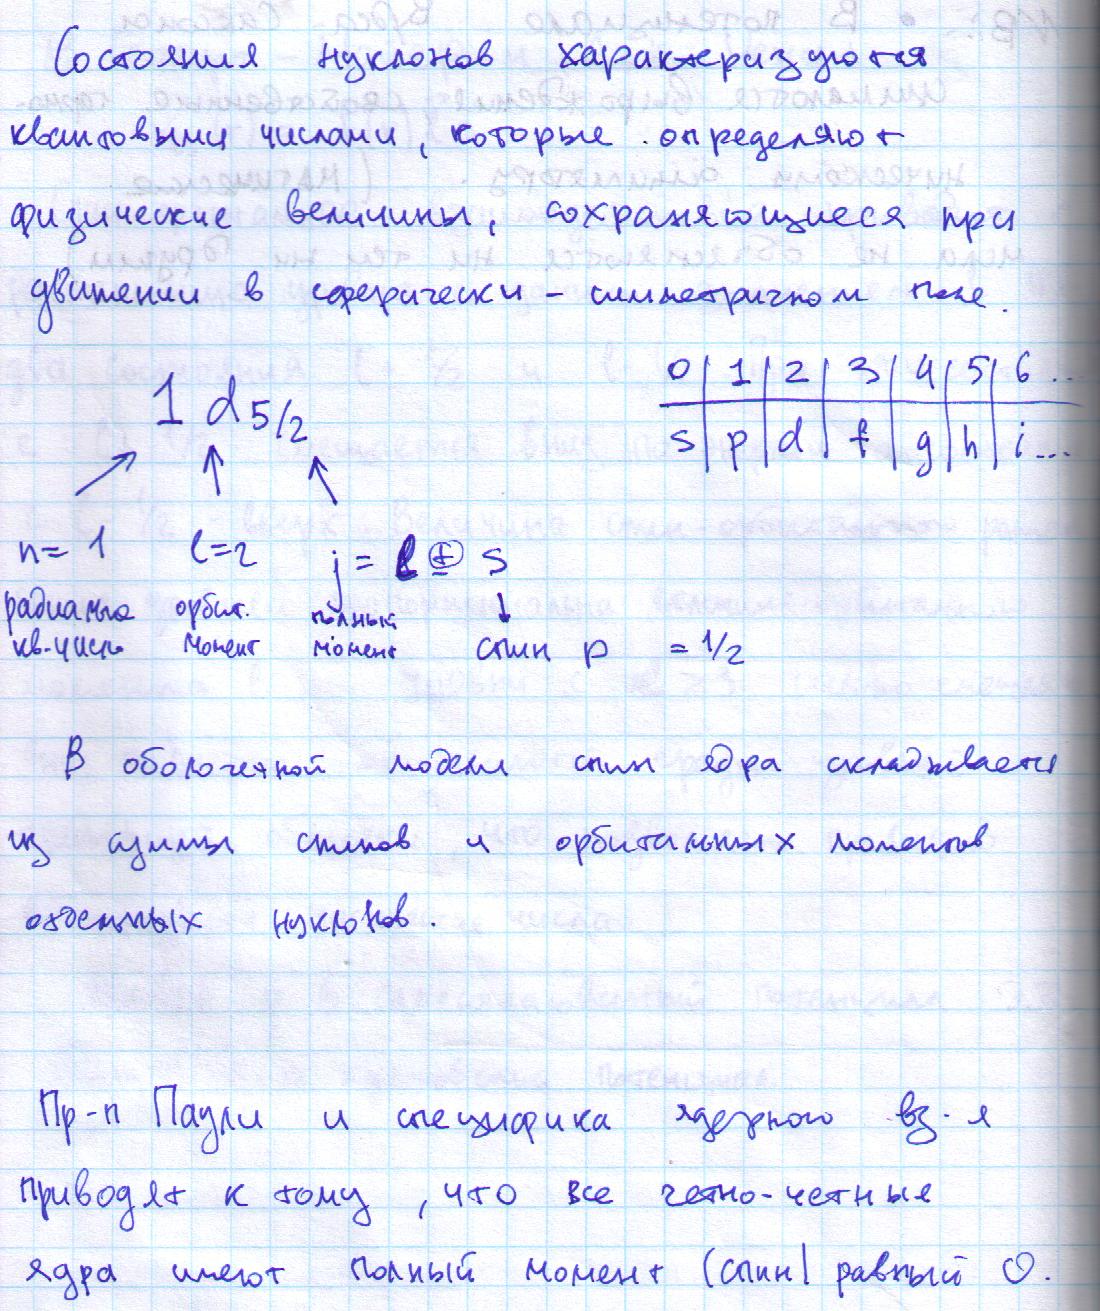 Состояния нуклонов характеризуются
квантовыми числами, которые определяют
физические величины, сохраняющиеся при
движении в сферически-симметричном поле.
1 d 5/2
0 | 1 | 2 | 3 | 4 | 5 | 6 ...
s | p | d | f | g | h | i ...
n = 1 l = 2 j = l ± s
радиальное орбит. полный
кв. число момент момент спин p = 1/2
В оболочечной модели спин ядра складывается
из суммы спинов и орбитальных моментов
отдельных нуклонов.
Пр-п Паули и специфика ядерного вз-я
приводят к тому, что все четно-четные
ядра имеют полный момент (спин) равный 0.